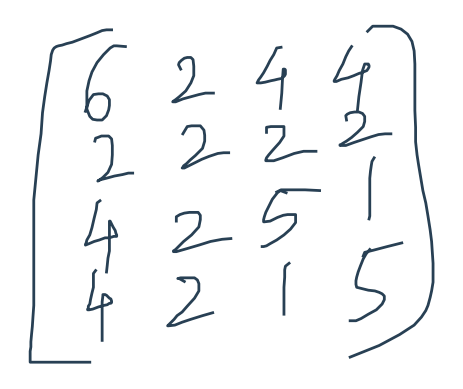 6 2 4 4
2 2 2 2
4 2 5 1
4 2 1 5